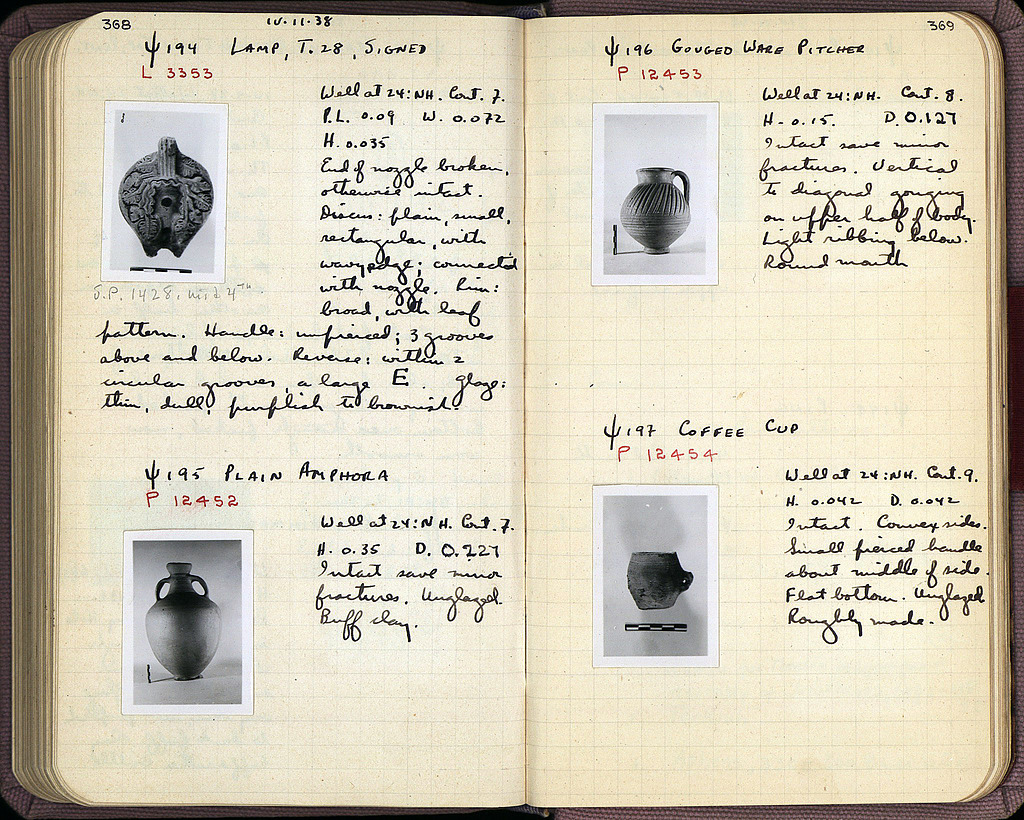 368
IV·11·38
ψ194 LAMP, T.28, SIGNED
L 3353
Well at 24:NH. Cont. 7.
P.L. 0.09 W. 0.072
H. 0.035
End of nozzle broken,
otherwise intact.
Discus: plain, small,
rectangular, with
wavy edge; connected
with nozzle. Rim:
broad, with leaf
pattern. Handle: unpierced; 3 grooves
above and below. Reverse: within 2
circular grooves, a large E. Glaze:
thin, dull, purplish to brownish.
J.P. 1428, mid 4TH.
ψ195 PLAIN AMPHORA
P 12452
Well at 24:NH. Cont. 7.
H. 0.35 D. 0.227
Intact save minor
fractures. Unglazed.
Buff clay.
369
ψ196 GOUGED WARE PITCHER
P 12453
Well at 24:NH. Cont. 8.
H. 0.15. D. 0.127
Intact save minor
fractures. Vertical
to diagonal gouging
on upper half of body.
Light ribbing below.
Round mouth
ψ197 COFFEE CUP
P 12454
Well at 24:NH. Cont. 9.
H. 0.042 D. 0.042
Intact. Convex sides.
Small pierced handle
about middle of side.
Flat bottom. Unglazed
Roughly made.